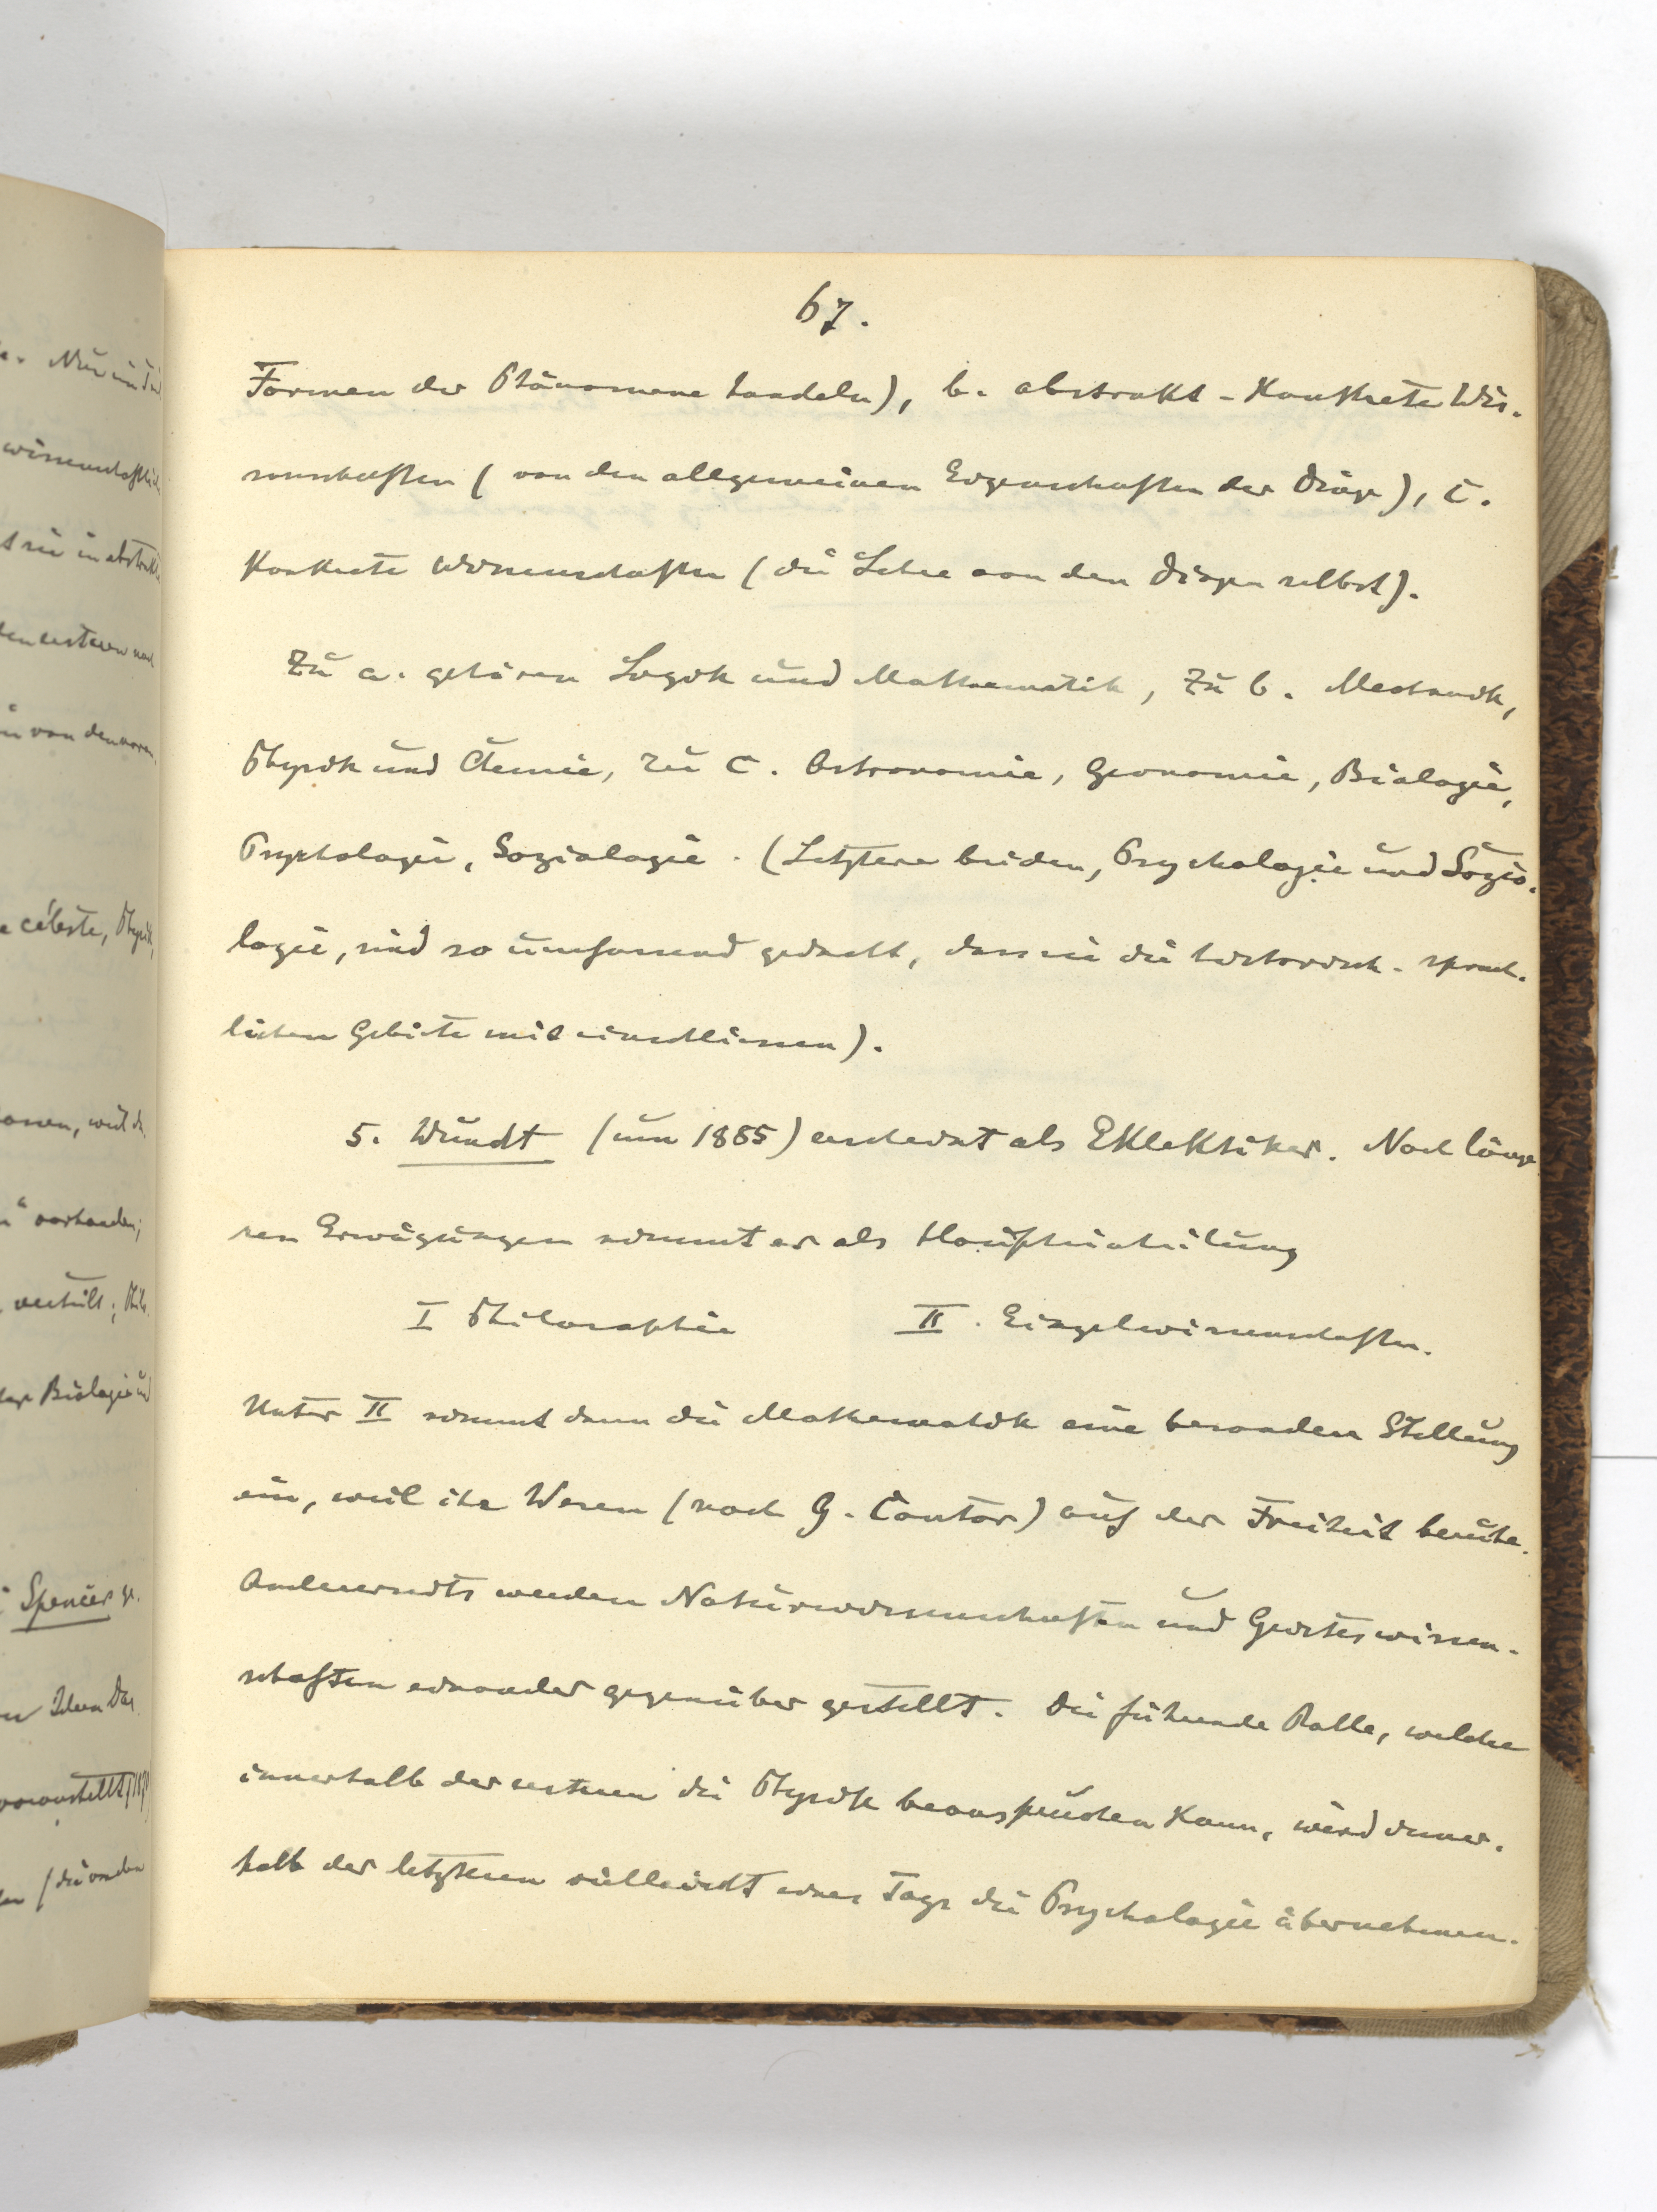 67.
Formen der Phänomene handeln), b. abstrakt-konkrete Wis-
senschaften (von den allgemeinen Eigenschaften der Dinge), c.
konkrete Wissenschaften (die Lehre von den Dingen selbst).
Zu a. gehören Logik und Mathematik, zu b. Mechanik,
Physik und Chemie, zu c. Astronomie, Geonomie, Biologie,
Psychologie, Soziologie. (Letztere beiden, Psychologie und Sozio-
logie, sind so umfassend gedacht, dass sie die historisch-sprach-
lichen Gebiete mit einschliessen).
5. Wundt (um 1885) erscheint als Eklektiker. Nach länge-
ren Erwägungen nimmt er als Haupteinteilung
I Philosophie II. Einzelwissenschaften.
Unter II nimmt dann die Mathematik eine besondere Stellung
ein, weil ihr Wesen (nach G. Cantor) auf der Freiheit beruhe.
Andererseits werden Naturwissenschaften und Geisteswissen-
schaften einander gegenüber gestellt. Die führende Rolle, welche
innerhalb der ersteren die Physik beanspruchen kann, wird inner-
halb der letzteren vielleicht eines Tags die Psychologie übernehmen.